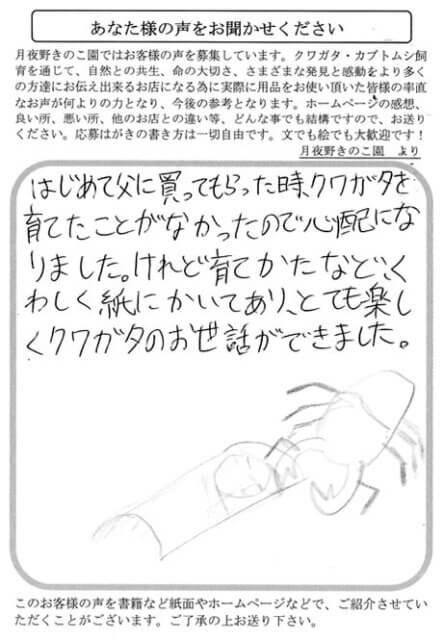 あなた様の声をお聞かせください
月夜野きのこ園ではお客様の声を募集しています。クワガタ・カブトムシ飼
育を通じて、自然との共生、命の大切さ、さまざまな発見と感動をより多く
の方達にお伝え出来るお店になる為に実際に用品をお使い頂いた皆様の率直
なお声が何よりの力となり、今後の参考となります。ホームページの感想、
良い所、悪い所、他のお店との違い等、どんな事でも結構ですので、お送り
ください。応募はがきの書き方は一切自由です。文でも絵でも大歓迎です！
月夜野きのこ園 より
はじめて父に買ってもらった時、クワガタを
育てたことがなかったので心配にな
りました。けれど育てかたなど、く
わしく紙にかいてあり、とても楽し
くクワガタのお世話ができました。
このお客様の声を書籍など紙面やホームページなどで、ご紹介させてい
ただくことがございます。ご了承の上お送り下さい。